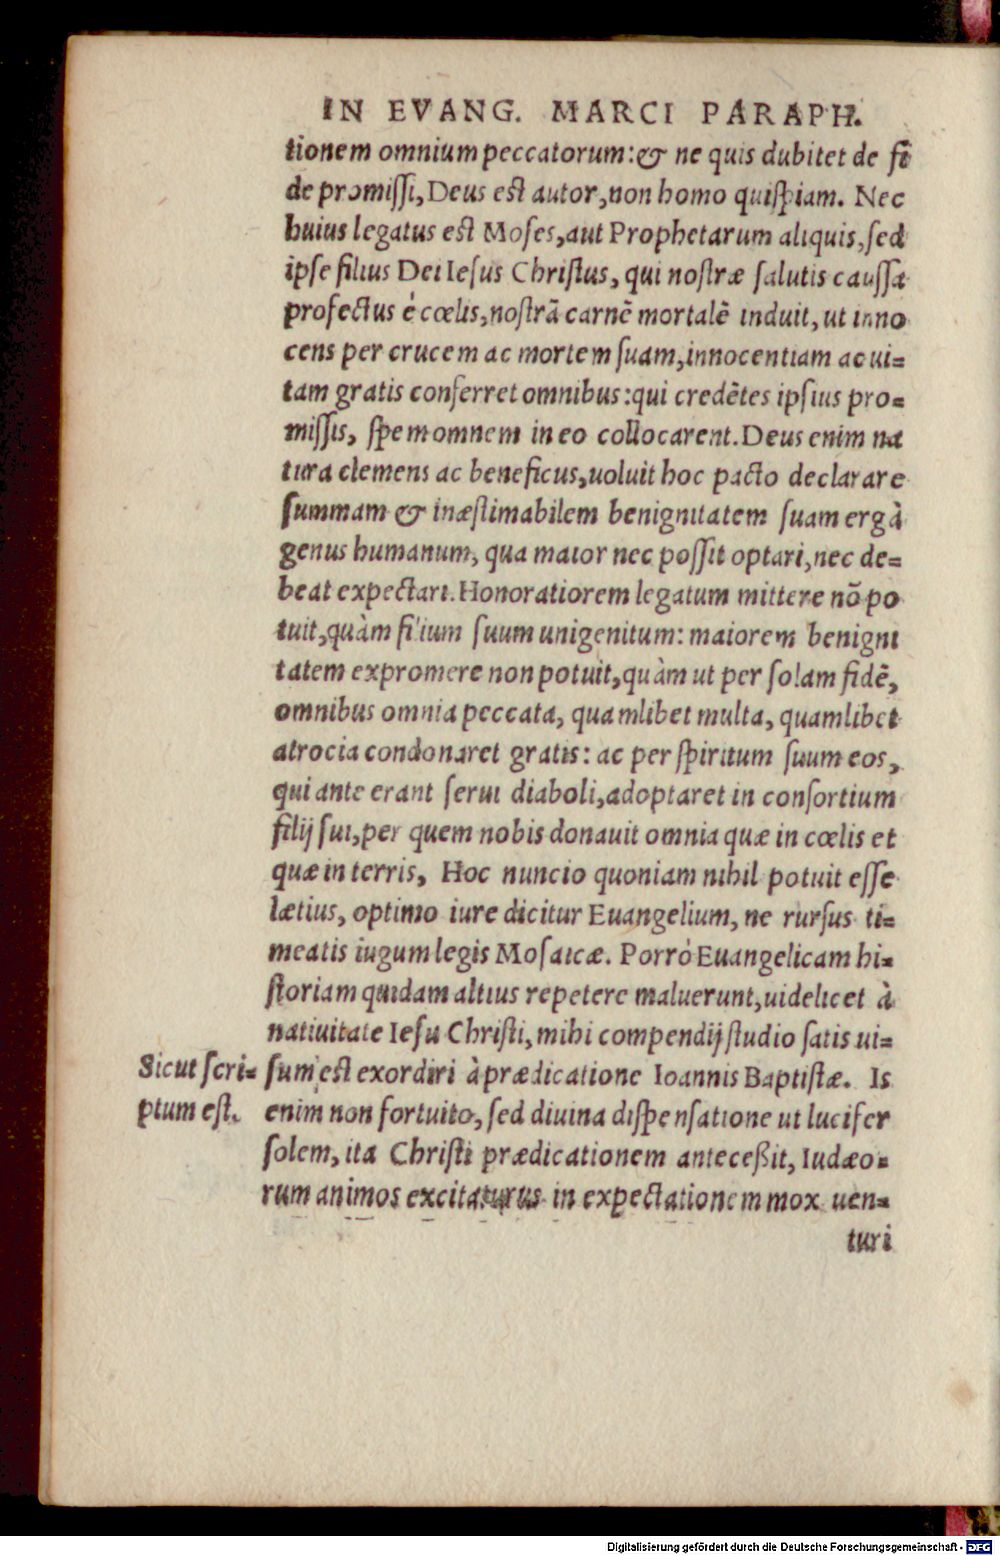 IN EVANG. MARCI PARAPH.
tionem omnium peccatorum: & ne quis dubitet de fi
de promissi, Deus est autor, non homo quispiam. Nec
huius legatus est Moses, aut Prophetarum aliquis, sed
ipse filius Dei Iesus Christus, qui nostræ salutis caussa
profectus é cœlis, nostrã carnẽ mortalẽ induit, ut inno
cens per crucem ac mortem suam, innocentiam ac ui=
tam gratis conferret omnibus: qui credẽtes ipsius pro=
missis, spem omnem in eo collocarent. Deus enim na
tura clemens ac beneficus, uoluit hoc pacto declarare
summam & inæstimabilem benignitatem suam ergà
genus humanum, qua maior nec possit optari, nec de=
beat expectari. Honoratiorem legatum mittere nõ po
tuit, quàm filium suum unigenitum: maiorem benigni
tatem expromere non potuit, quàm ut per solam fidẽ,
omnibus omnia peccata, quamlibet multa, quamlibet
atrocia condonaret gratis: ac per spiritum suum eos,
qui ante erant serui diaboli, adoptaret in consortium
filij sui, per quem nobis donauit omnia quæ in cœlis et
quæ in terris, Hoc nuncio quoniam nihil potuit esse
lætius, optimo iure dicitur Euangelium, ne rursus ti=
meatis iugum legis Mosaicæ. Porró Euangelicam hi=
storiam quidam altius repetere maluerunt, uidelicet à
natiuitate Iesu Christi, mihi compendij studio satis ui=
Sicut scri= sum est exordiri à prædicatione Ioannis Baptistæ. Is
ptum est. enim non fortuito, sed diuina dispensatione ut lucifer
solem, ita Christi prædicationem anteceßit, Iudæo=
rum animos excitaturus in expectationem mox uen=
turi
Digitalisierung gefördert durch die Deutsche Forschungsgemeinschaft - DFG